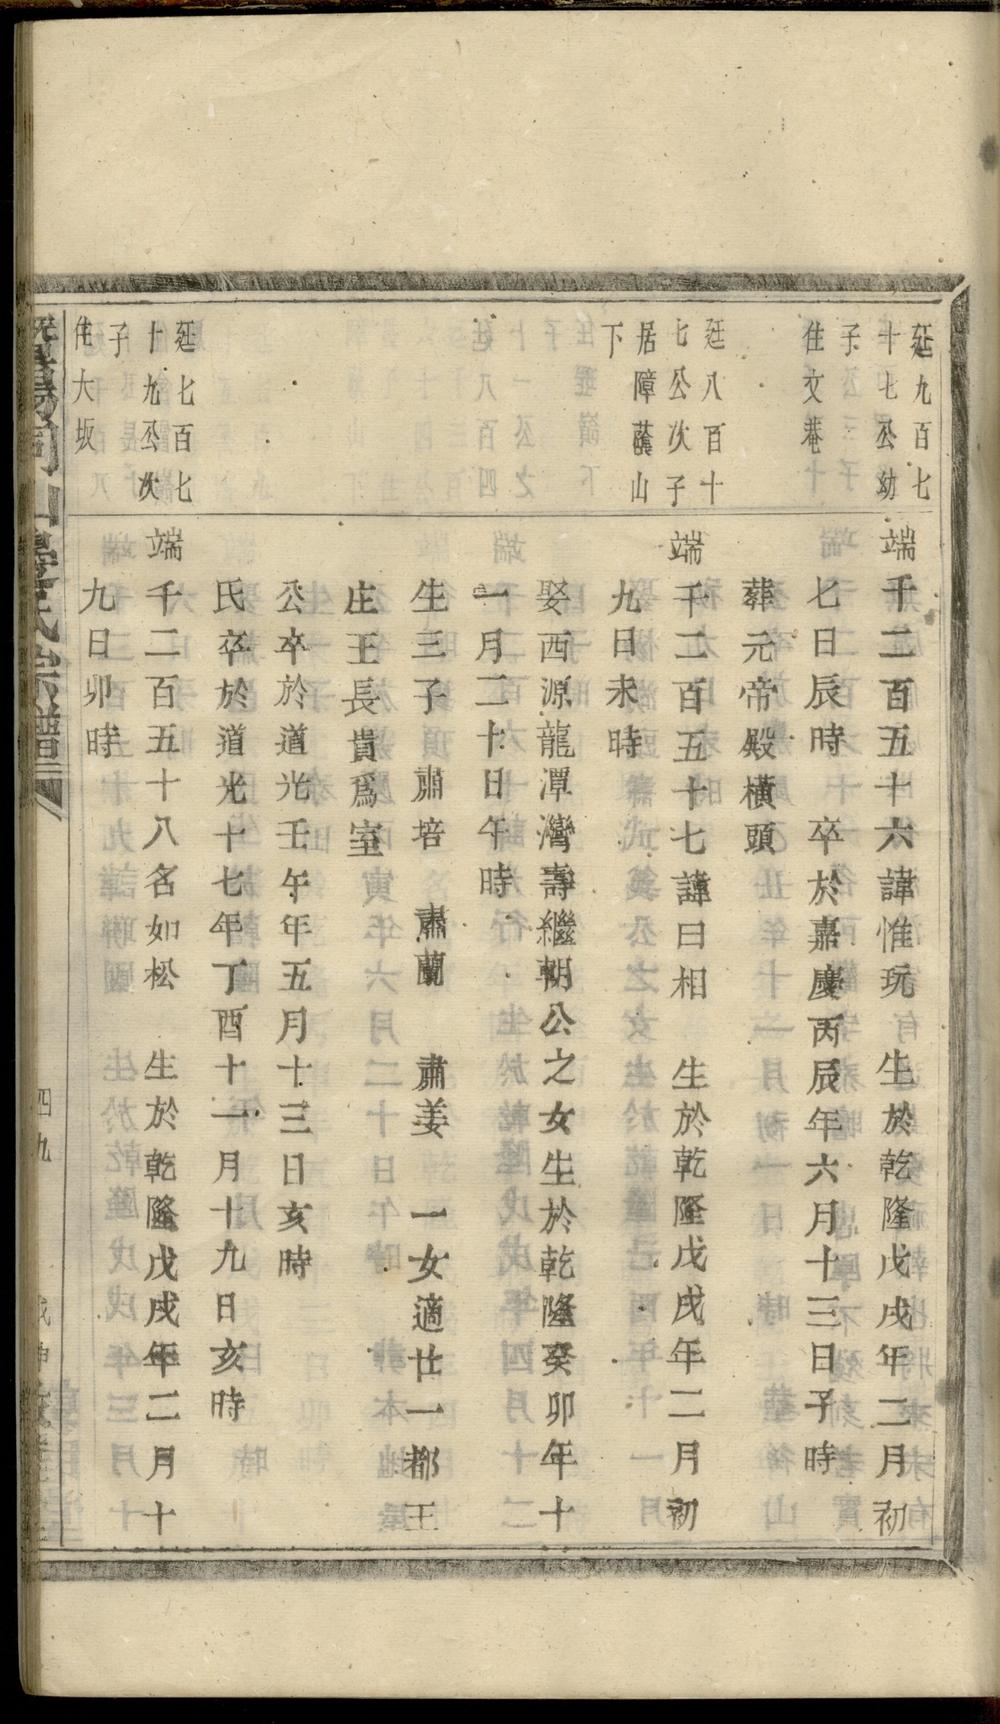 廷九百七
十七公幼
子
住文巷
端千二百五十六諱惟玩　生於乾隆戊戌年二月初
七日辰時　卒於嘉慶丙辰年六月十三日子時
葬元帝殿橫頭
廷八百十
七公次子
居障蓭山
下
端千二百五十七諱曰相　生於乾隆戊戌年二月初
九日未時
娶西源龍潭灣壽繼朝公之女生於乾隆癸卯年十
一月二十日午時
生三子　肅培　肅蘭　肅姜　一女適廿一都王
庄王長貴爲室
公卒於道光壬午年五月十三日亥時
氏卒於道光十七年丁酉十一月十九日亥時
廷七百七
十九公次
子
住大坂
端千二百五十八名如松　生於乾隆戊戌年二月十
九日卯時
四九